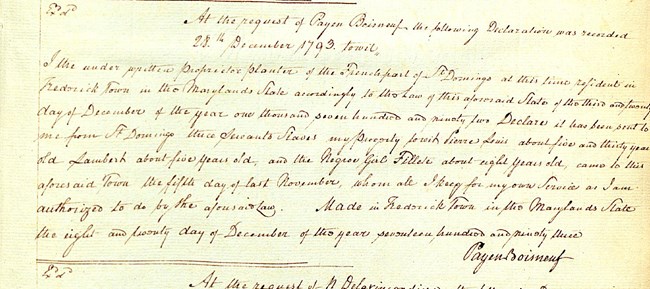 At the request of Payen Boisneuf the following Declaration was recorded
28th December 1793 towit
I the under written Proprietor planter of the French part of St Domingo at this time resident in
Frederick Town in the Maryland State accordingly to the Law of this aforesaid State of the third and twenty
day of December of the year one thousand seven hundred and ninety two Declare it has been sent to
me from St Domingo three Servants Slaves my property towit Pierre Louis about five and thirty years
old Lambert about five years old, and the Negroe Girl Fillele about eight years old, came to this
aforesaid Town the fifth day of last November, whom all I keep for my own Service as I am
authorized to do by the aforesaid Law. Made in Frederick Town in the Marylands State
the eight and twenty day of December of the year seventeen hundred and ninety three
Payen Boisneuf
At the request of